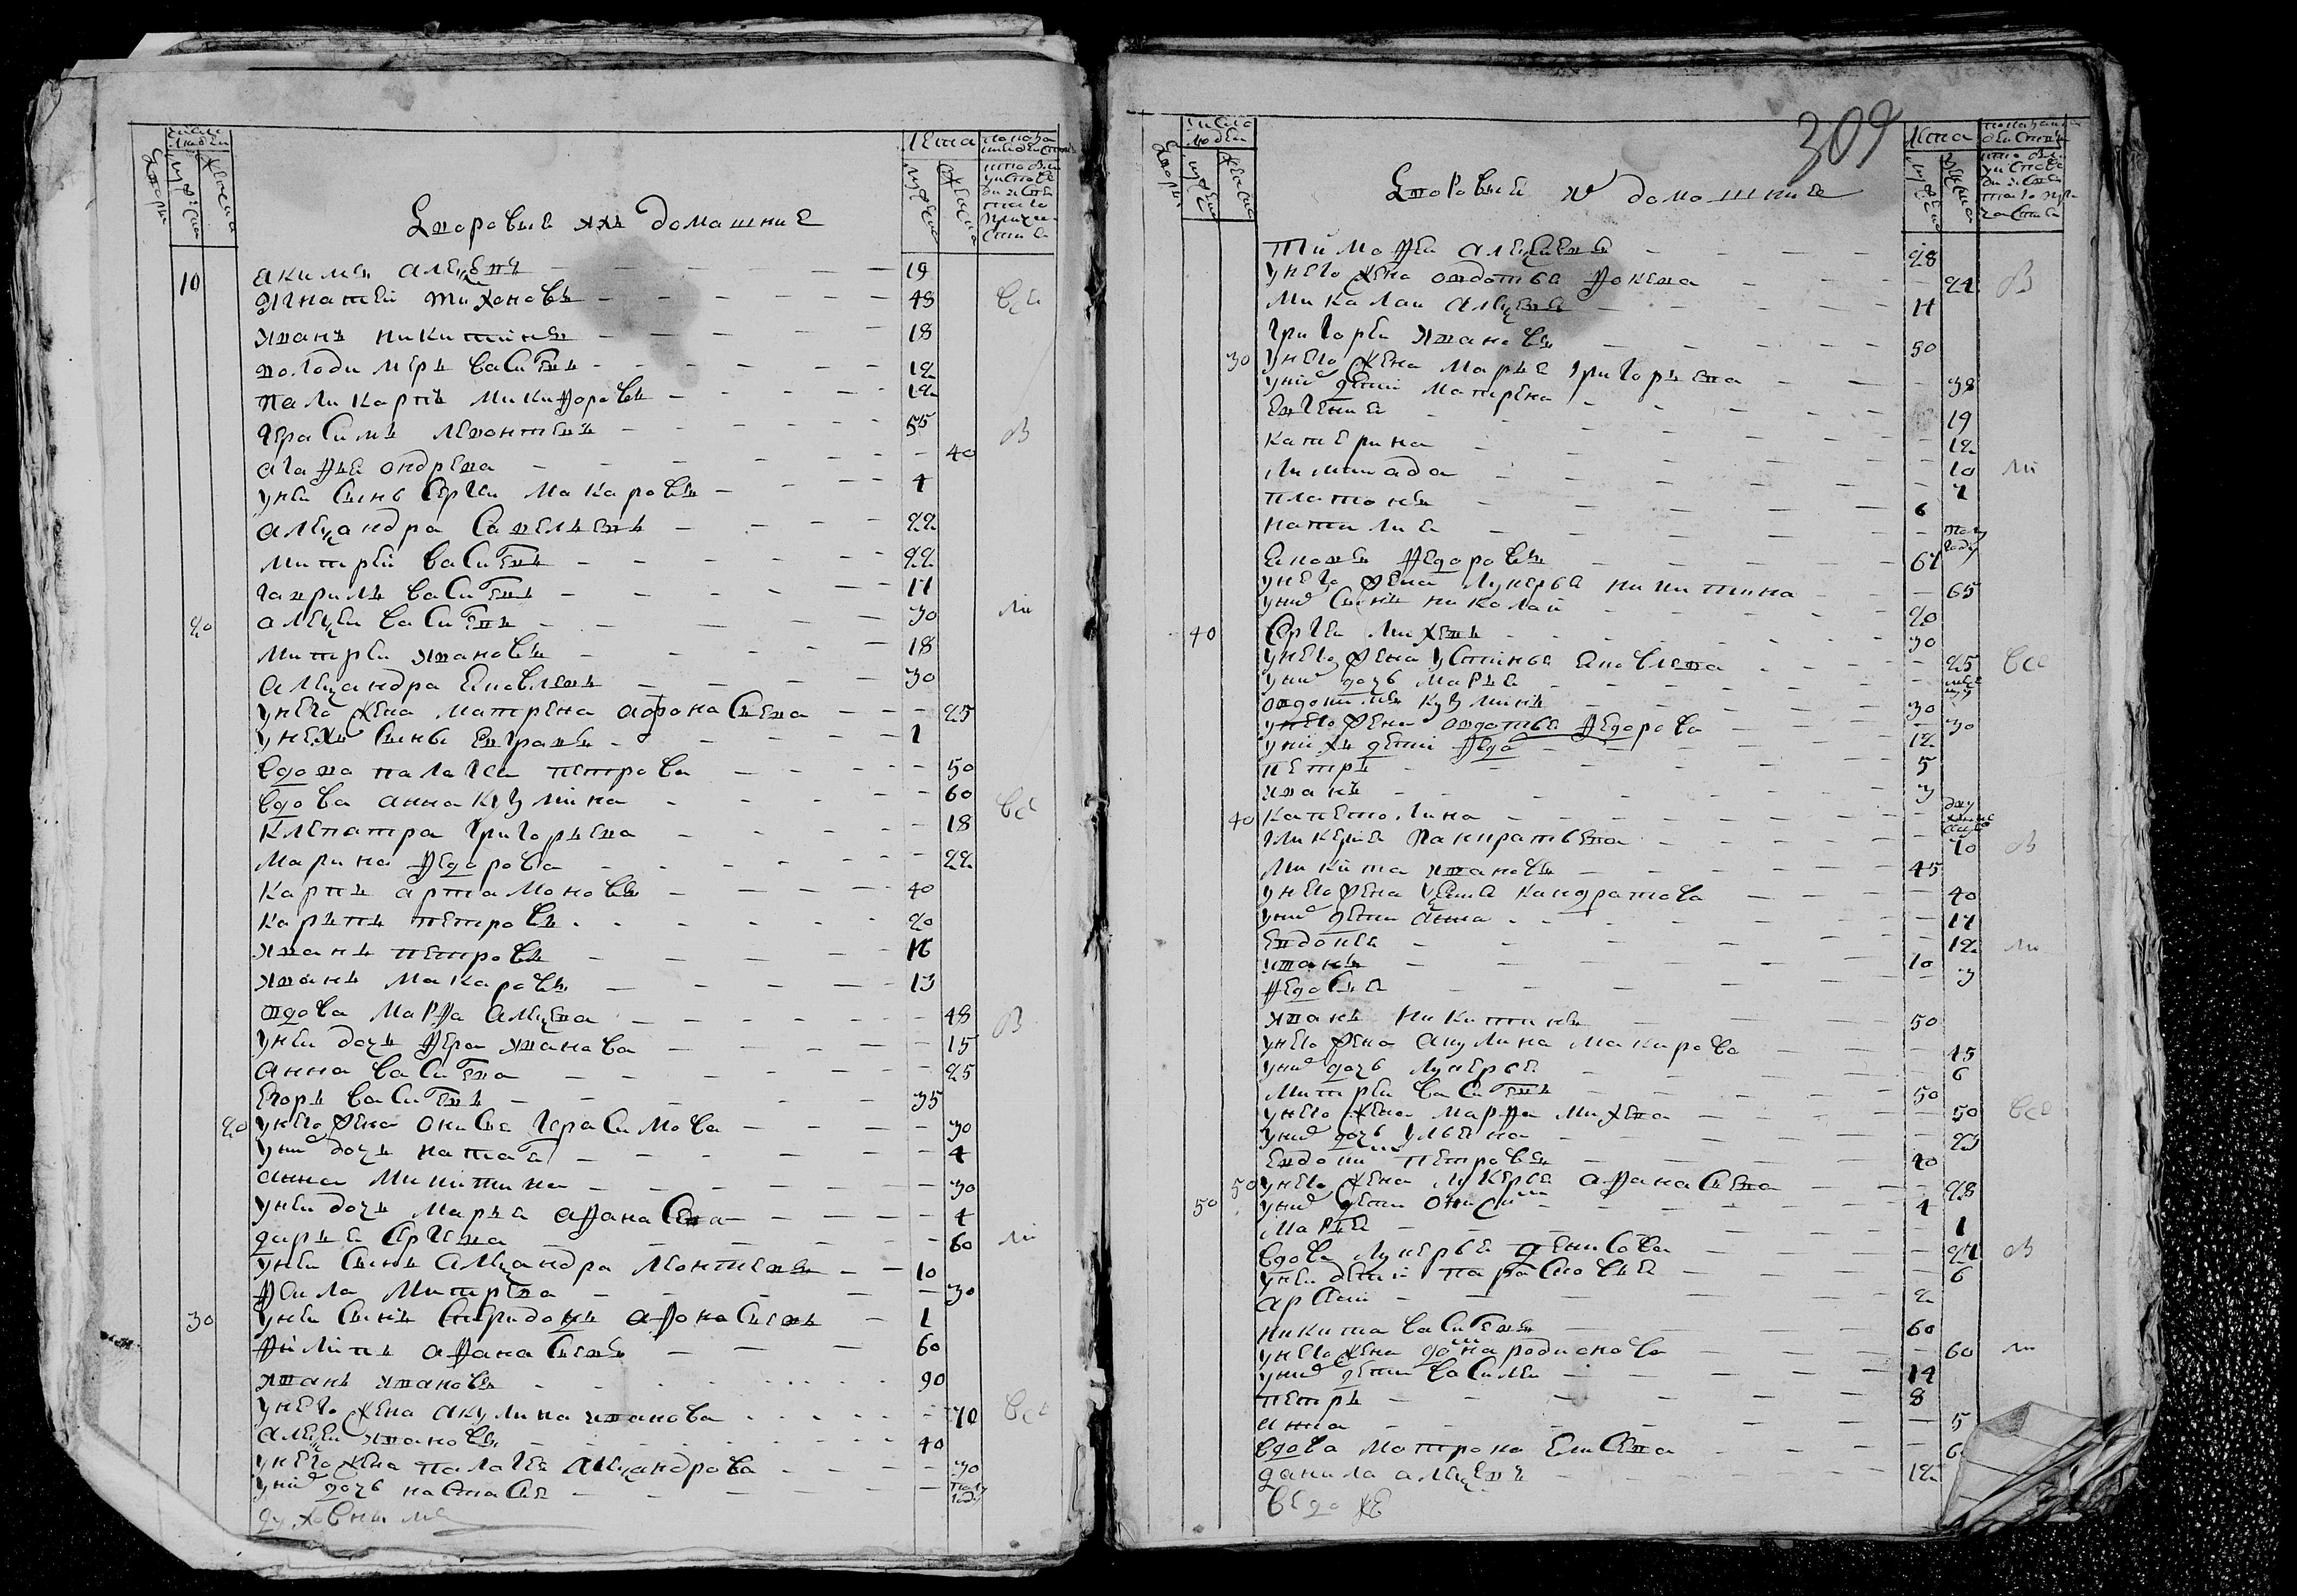 число людей
Дворы
мужеска
женска
дворовые их домашние
лета
мужска
женска
10 акимъ алексевъ 19
Игнатей тихоновъ 48
Иванъ никитинъ 18
володимеръ василевъ 12
паликарпъ микифоровъ 12
Герасимъ левонтевъ 55
агафья ондрева 40
у неи сынъ сергеи макаровъ 4
александра савельевъ 22
митрей василевъ 22
гаврилъ василевъ 11
20 алексеи василевъ 30
митреи ивановъ 18
александра яковлевъ 30
у него жена матрена афонасьева 25
у нехъ сынъ евграфъ 1
вдова палагея петрова 50
вдова анна кузмина 60
клепатра григорьева 18
марина федорова 22
карпъ артамоновъ 40
карпъ петровъ 20
иванъ петровъ 16
иванъ макаровъ 13
вдова марфа алексева 48
у неи дочь вера иванова 15
анна василева 25
егоръ василевъ 35
20 у него жена онисья герасимова 30
у них дочь наталя 4
анна микитина 30
у неи дочь марья афанасева 4
дарья сергева 60
у неи сынъ александра леонтиевъ 10
феила митрева 30
30 у неи сынъ спиридонъ афонасьевъ 1
филипъ афанасьевъ 60
иванъ ивановъ 90
у него жена акулина иванова 70
алексеи ивановъ 40
у него жена палагея александрова 30
у них дочь настасья полу году
духовнымъ
309
число людей
Дворы
мужеска
женска
дворовые и домошние
лета
мужеска
женска
тимофеи алексеевъ 28
у него жена овдотья фокева 24
микалаи алексевъ 11
григореи ивановъ 50
30 у него жена марья григорьева 38
у них дети матрена 19
евгения 12
катерина 10
лимпиада 7
платонъ 6
наталия полу году
яковъ федоровъ 67
у него жена лукерья никитина 65
у них сынъ николаи 20
40 сергеи михевъ 30
у него жена устинья яковлева 25
у них дочь марья
овдокимъ кузминъ 30
у него жена овдотья федорова 30
у нихъ дети федо 12
петръ 5
иванъ 3
40 капетолина
гликерия панкратьева 70
микита ивановъ 45
у него жена ксения кандратова 40
у них дети анна 17
евдокея 12
иванъ 10
федосья 3
иванъ никитинъ 50
у него жена акулина макарова 45
у них дочь лукерья 6
митреи василевъ 50
у него жена марфа михева 50
у них дочь ульяна 23
евдоким петровъ 40
50 у него жена лукерья афанасьева 28
50 у них дети онисим 4
марья 1
вдова лукерья денисова 27
у неи дети парасковья 6
арсени 2
никита василевъ 60
у него жена домна родионова 60
у них дети василеи 14
петръ 8
анна 5
вдова матрона евсева
данила алексевъ 12